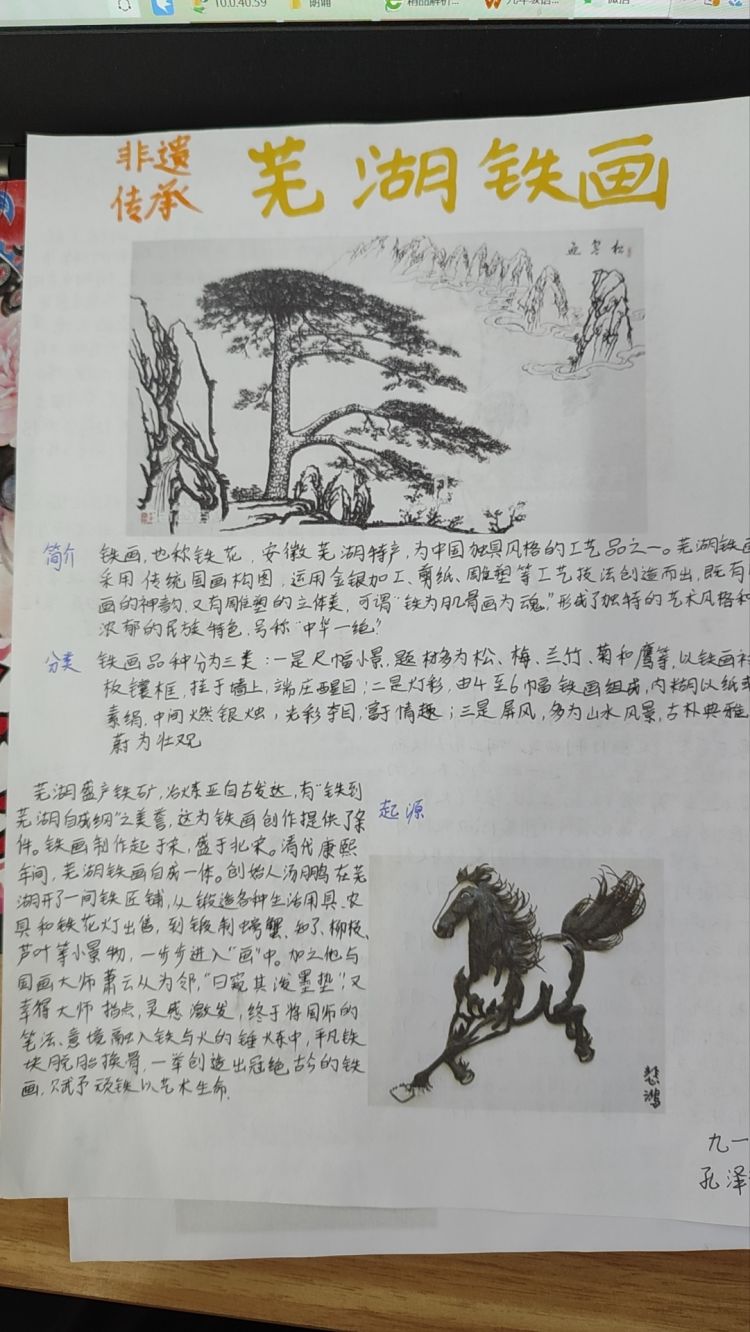 10.0.40.59
朗诵
精品解析...
微信
非遗
传承
芜湖铁画
迎客松
简介
铁画,也称铁花,安徽芜湖特产,为中国独具风格的工艺品之一。芜湖铁画
采用传统国画构图,运用金银加工、剪纸、雕塑等工艺技法创造而出,既有
画的神韵,又有雕塑的立体美,可谓“铁为肌骨画为魂”,形成了独特的艺术风格和
浓郁的民族特色,号称“中华一绝”
分类
铁画品种分为三类:一是尺幅小景,题材多为松、梅、兰竹、菊和鹰等,以铁画衬
板镶框,挂于墙上,端庄醒目;二是灯彩,由4至6幅铁画组成,内糊以纸或
素绢,中间燃银烛,光彩夺目,富于情趣;三是屏风,多为山水风景,古朴典雅,
蔚为壮观
芜湖盛产铁矿,冶炼业自古发达,有“铁到
芜湖自成钢”之美誉,这为铁画创作提供了条
件。铁画制作起于宋,盛于北宋。清代康熙
年间,芜湖铁画自成一体。创始人汤鹏在芜
湖开了一间铁匠铺,从锻造各种生活用具、农
具和铁花灯出售,到锻制螃蟹、知了、柳枝、
芦叶等小景物,一步步进入“画”中。加之他与
国画大师萧云从为邻,“日窥其泼墨势”,又
幸得大师指点,灵感激发,终于将国师的
笔法、意境融入铁与火的锤炼中,平凡铁
块脱胎换骨,一举创造出冠绝古今的铁
画,赋予顽铁以艺术生命.
起源
悲鸿
九一
孔泽